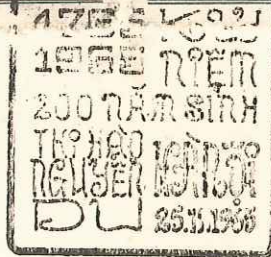 1765 KỶ
1965 NIỆM
200 NĂM SINH
THI HÀO
NGUYỄN HÀ NỘI
DU 25.11.1965